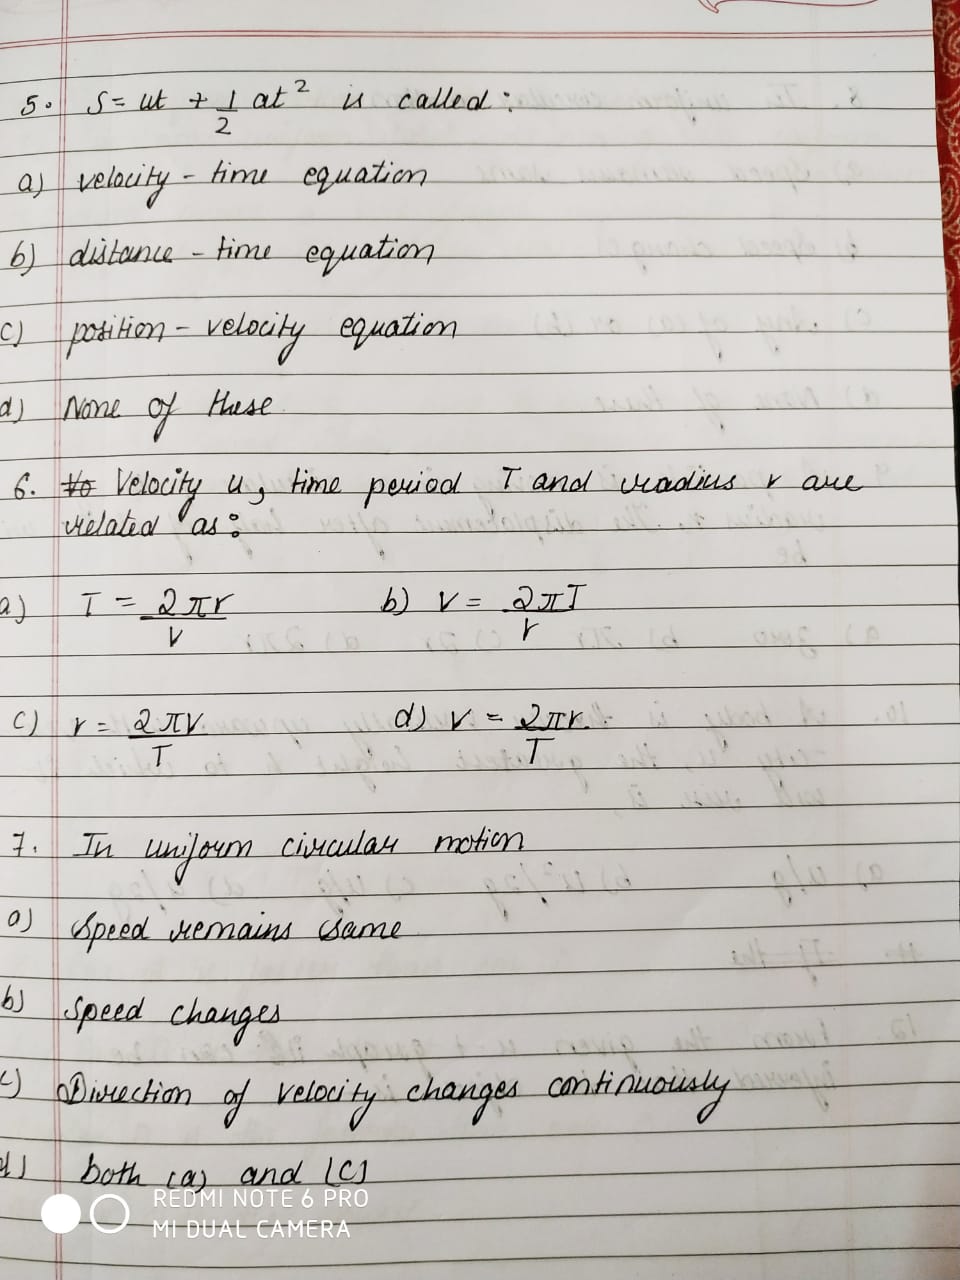 5. S = ut + 1/2 at² is called :
a) velocity - time equation
b) distance - time equation
c) position - velocity equation
d) None of these
6. Velocity u, time period T and radius r are
related as :
a) T = 2πr/v b) v = 2πT/r
c) r = 2πv/T d) v = 2πr/T
7. In uniform circular motion
a) Speed remains same
b) Speed changes
c) Direction of velocity changes continuously
d) both (a) and (c)
REDMI NOTE 6 PRO
MI DUAL CAMERA